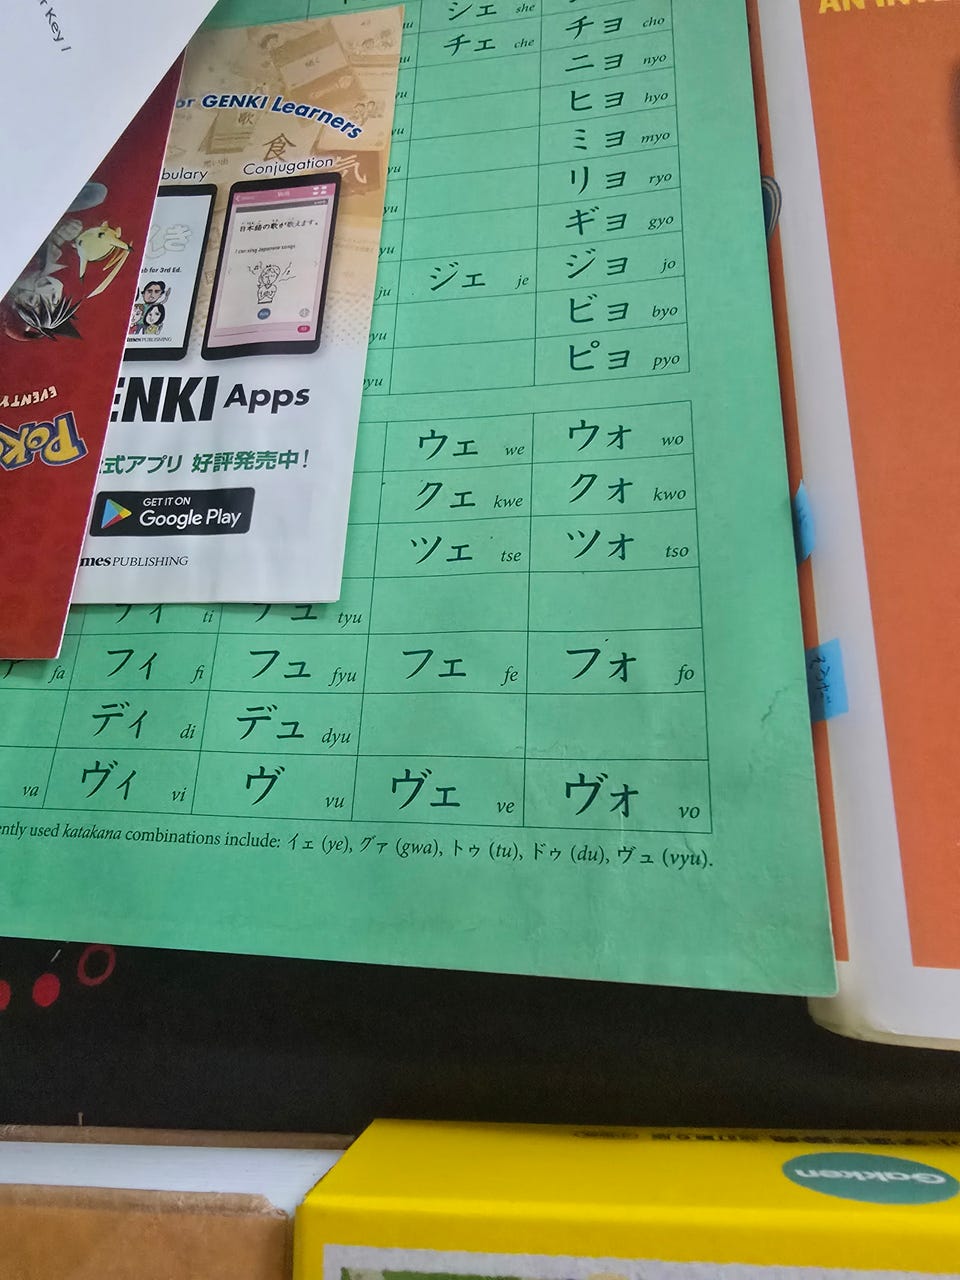 Key I
or GENKI Learners
歌
食
気
bulary
Conjugation
日本語の歌が歌えます。
I can sing Japanese songs
ab for 3rd Ed.
mesPUBLISHING
ENKI Apps
式アプリ 好評発売中!
GET IT ON
Google Play
mesPUBLISHING
シェ she
チェ che チョ cho
ニョ nyo
ヒョ hyo
ミョ myo
リョ ryo
ギョ gyo
ju ジェ je ジョ jo
ビョ byo
pyu ピョ pyo
ウェ we ウォ wo
クェ kwe クォ kwo
ツェ tse ツォ tso
ティ ti テュ tyu
fa フィ fi フュ fyu フェ fe フォ fo
ディ di デュ dyu
va ヴィ vi ヴ vu ヴェ ve ヴォ vo
ently used katakana combinations include: イェ (ye), グァ (gwa), トゥ (tu), ドゥ (du), ヴュ (vyu).
Gakken